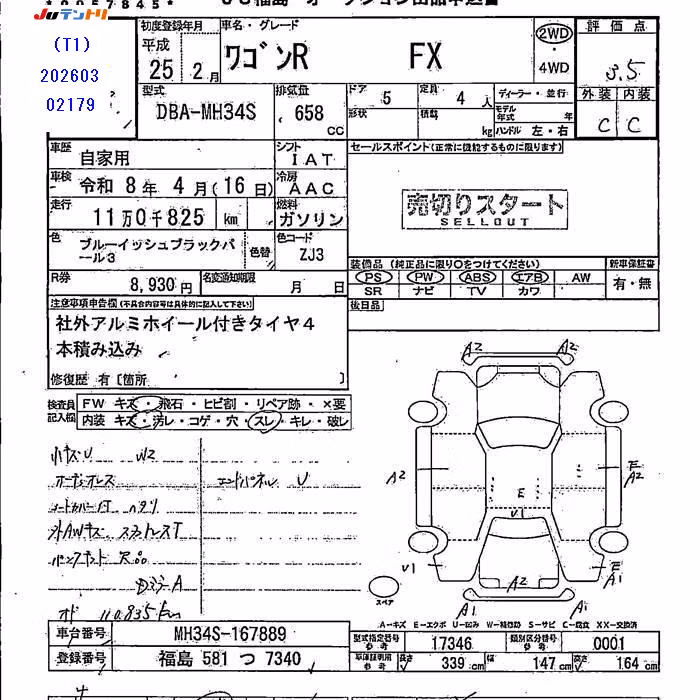 Juテントリ
(T1)
202603
02179
初度登録年月
平成
25 2月
車名・グレード
ワゴンR FX
2WD
4WD
評価点
3.5
外装 内装
C C
型式
DBA-MH34S
排気量
658
CC
ドア 5
定員 4 人
ディーラー・並行
形状
積載 kg
モデル年式 年
ハンドル 左・右
車歴 自家用
シフト IAT
セールスポイント(正常に機能するものに限ります)
車検 令和 8年 4月(16日)
冷房 AAC
走行 11万0千825 km
燃料 ガソリン
売切りスタート
SELLOUT
色 ブルーイッシュブラックパール3
色替
色コード ZJ3
装備品 (純正品に限り○をつけてください)
新車保証書
PS PW ABS エアB AW
有・無
SR ナビ TV カワ
R券 8,930円
名変通知期限 月 日
後日品
注意事項申告欄(不具合内容等は具体的に記入して下さい)
社外アルミホイール付きタイヤ4
本積み込み
修復歴 有〔箇所 〕
検査員記入欄
FW キズ・飛石・ヒビ割・リペア跡・×要
内装 キズ・汚レ・コゲ・穴・スレ・キレ・破レ
小キズU W2
オーディオレス エンドパネル U
外AWキズ
A2 A2
A2 E A2
E
V1
V1 A2 E A1
A1 A1
スペア
A-キズ E-エクボ U-凹み W-補修跡 S-サビ C-腐食 XX-交換済
車台番号 MH34S-167889
型式指定番号 参考 17346
類別区分番号 参考 0001
登録番号 福島 581 つ 7340
車庫証明用 参考
長さ 339 cm
幅 147 cm
高さ 164 cm